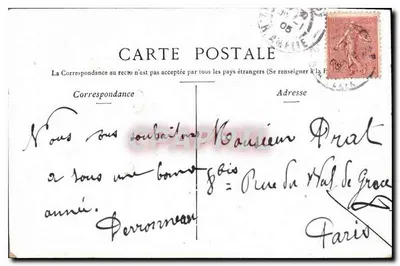 CARTE POSTALE
La Correspondance au recto n'est pas acceptée par tous les pays étrangers (Se renseigner à la
Correspondance
Adresse
Nous vous souhaitons
a tous une bonne
année.
Perronneau
Monsieur Prat
8 bis Rue du Val de Grace
Paris